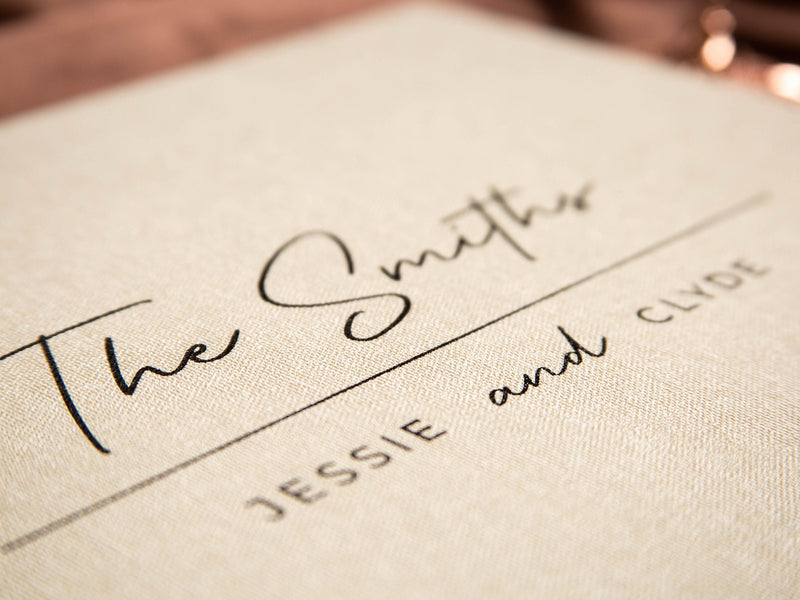 The Smiths
JESSIE and CLYDE